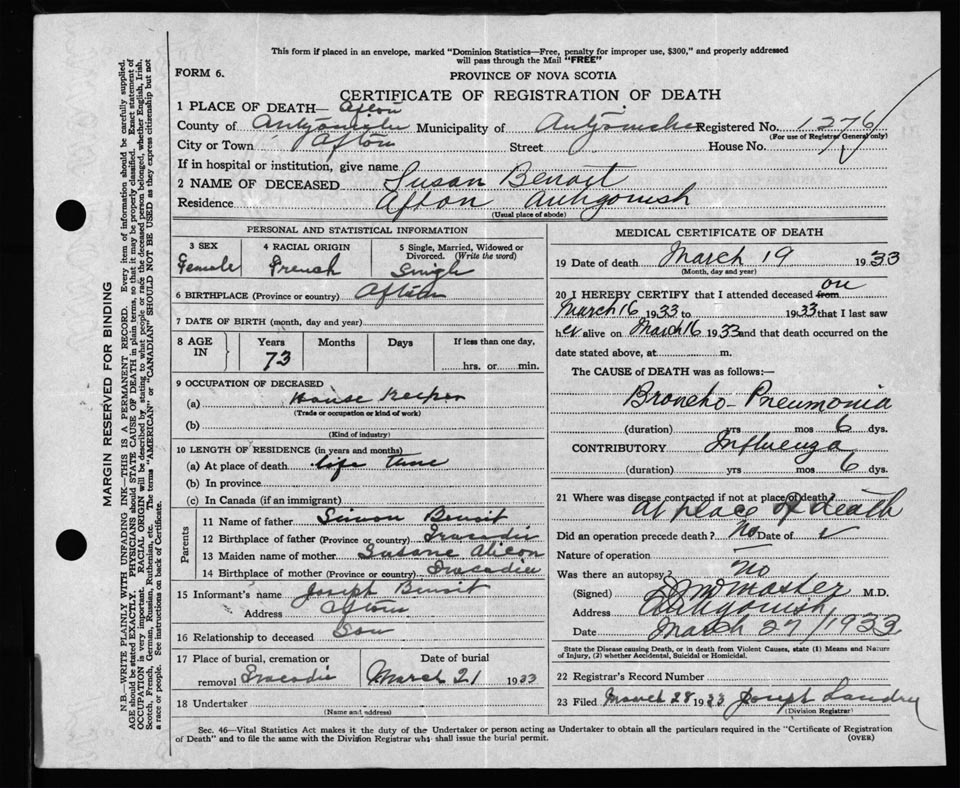 This form if placed in an envelope, marked "Dominion Statistics—Free, penalty for improper use, $300," and properly addressed
will pass through the Mail "FREE"
FORM 6.
PROVINCE OF NOVA SCOTIA
CERTIFICATE OF REGISTRATION OF DEATH
1 PLACE OF DEATH— Afton
County of Antigonish Municipality of Antigonish Registered No. 1276
(For use of Registrar General only)
City or Town Afton Street House No.
If in hospital or institution, give name
2 NAME OF DECEASED Susan Benoit
Residence Afton Antigonish
(Usual place of abode)
PERSONAL AND STATISTICAL INFORMATION
3 SEX 4 RACIAL ORIGIN 5 Single, Married, Widowed or
Divorced. (Write the word)
Female French Single
6 BIRTHPLACE (Province or country) Afton
7 DATE OF BIRTH (month, day and year)
8 AGE IN Years Months Days If less than one day,
73 hrs. or min.
9 OCCUPATION OF DECEASED
(a) House Keeper
(Trade or occupation or kind of work)
(b)
(Kind of industry)
10 LENGTH OF RESIDENCE (in years and months)
(a) At place of death life time
(b) In province
(c) In Canada (if an immigrant)
Parents
11 Name of father Simon Benoit
12 Birthplace of father (Province or country) Tracadie
13 Maiden name of mother
14 Birthplace of mother (Province or country) Tracadie
15 Informant's name Joseph Benoit
Address Afton
16 Relationship to deceased Son
17 Place of burial, cremation or Date of burial
removal Tracadie March 21 1933
18 Undertaker
(Name and address)
MEDICAL CERTIFICATE OF DEATH
19 Date of death March 19 1933
(Month, day and year)
20 I HEREBY CERTIFY that I attended deceased from on
March 16 1933 to 1933 that I last saw
her alive on March 16 1933 and that death occurred on the
date stated above, at m.
The CAUSE of DEATH was as follows:—
Broncho-Pneumonia
(duration) yrs mos 6 dys.
CONTRIBUTORY Influenza
(duration) yrs mos 6 dys.
21 Where was disease contracted if not at place of death?
at place of death
Did an operation precede death? No Date of
Nature of operation —
Was there an autopsy? No
(Signed) M.D.
Address Antigonish
Date March 27/1933
State the Disease causing Death, or in death from Violent Causes, state (1) Means and Nature
of Injury, (2) whether Accidental, Suicidal or Homicidal.
22 Registrar's Record Number
23 Filed March 28 1933 Joseph Landry
(Division Registrar)
Sec. 46—Vital Statistics Act makes it the duty of the Undertaker or person acting as Undertaker to obtain all the particulars required in the "Certificate of Registration
of Death" and to file the same with the Division Registrar who shall issue the burial permit.
(OVER)
MARGIN RESERVED FOR BINDING
N.B.—WRITE PLAINLY WITH UNFADING INK—THIS IS A PERMANENT RECORD. Every item of information should be carefully supplied.
AGE should be stated EXACTLY. PHYSICIANS should STATE CAUSE OF DEATH in plain terms, so that it may be properly classified. Exact statement of
OCCUPATION is very important. RACIAL ORIGIN will be described by stating to what people or race the deceased person belonged, whether English, Irish,
Scotch, French, German, Russian, Ruthenian, etc. The terms "AMERICAN" or "CANADIAN" SHOULD NOT BE USED as they express citizenship but not
a race or people. See instructions on back of Certificate.